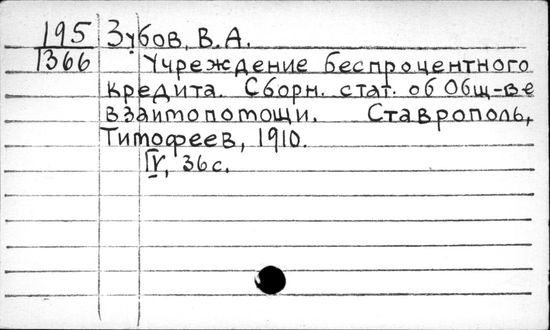 195 Зубов, В.А.
1366 Учреждение беспроцентного
кредита. Сборн. стат. об Общ-ве
взаимопомощи. Ставрополь,
Тимофеев, 1910.
IV, 36 с.